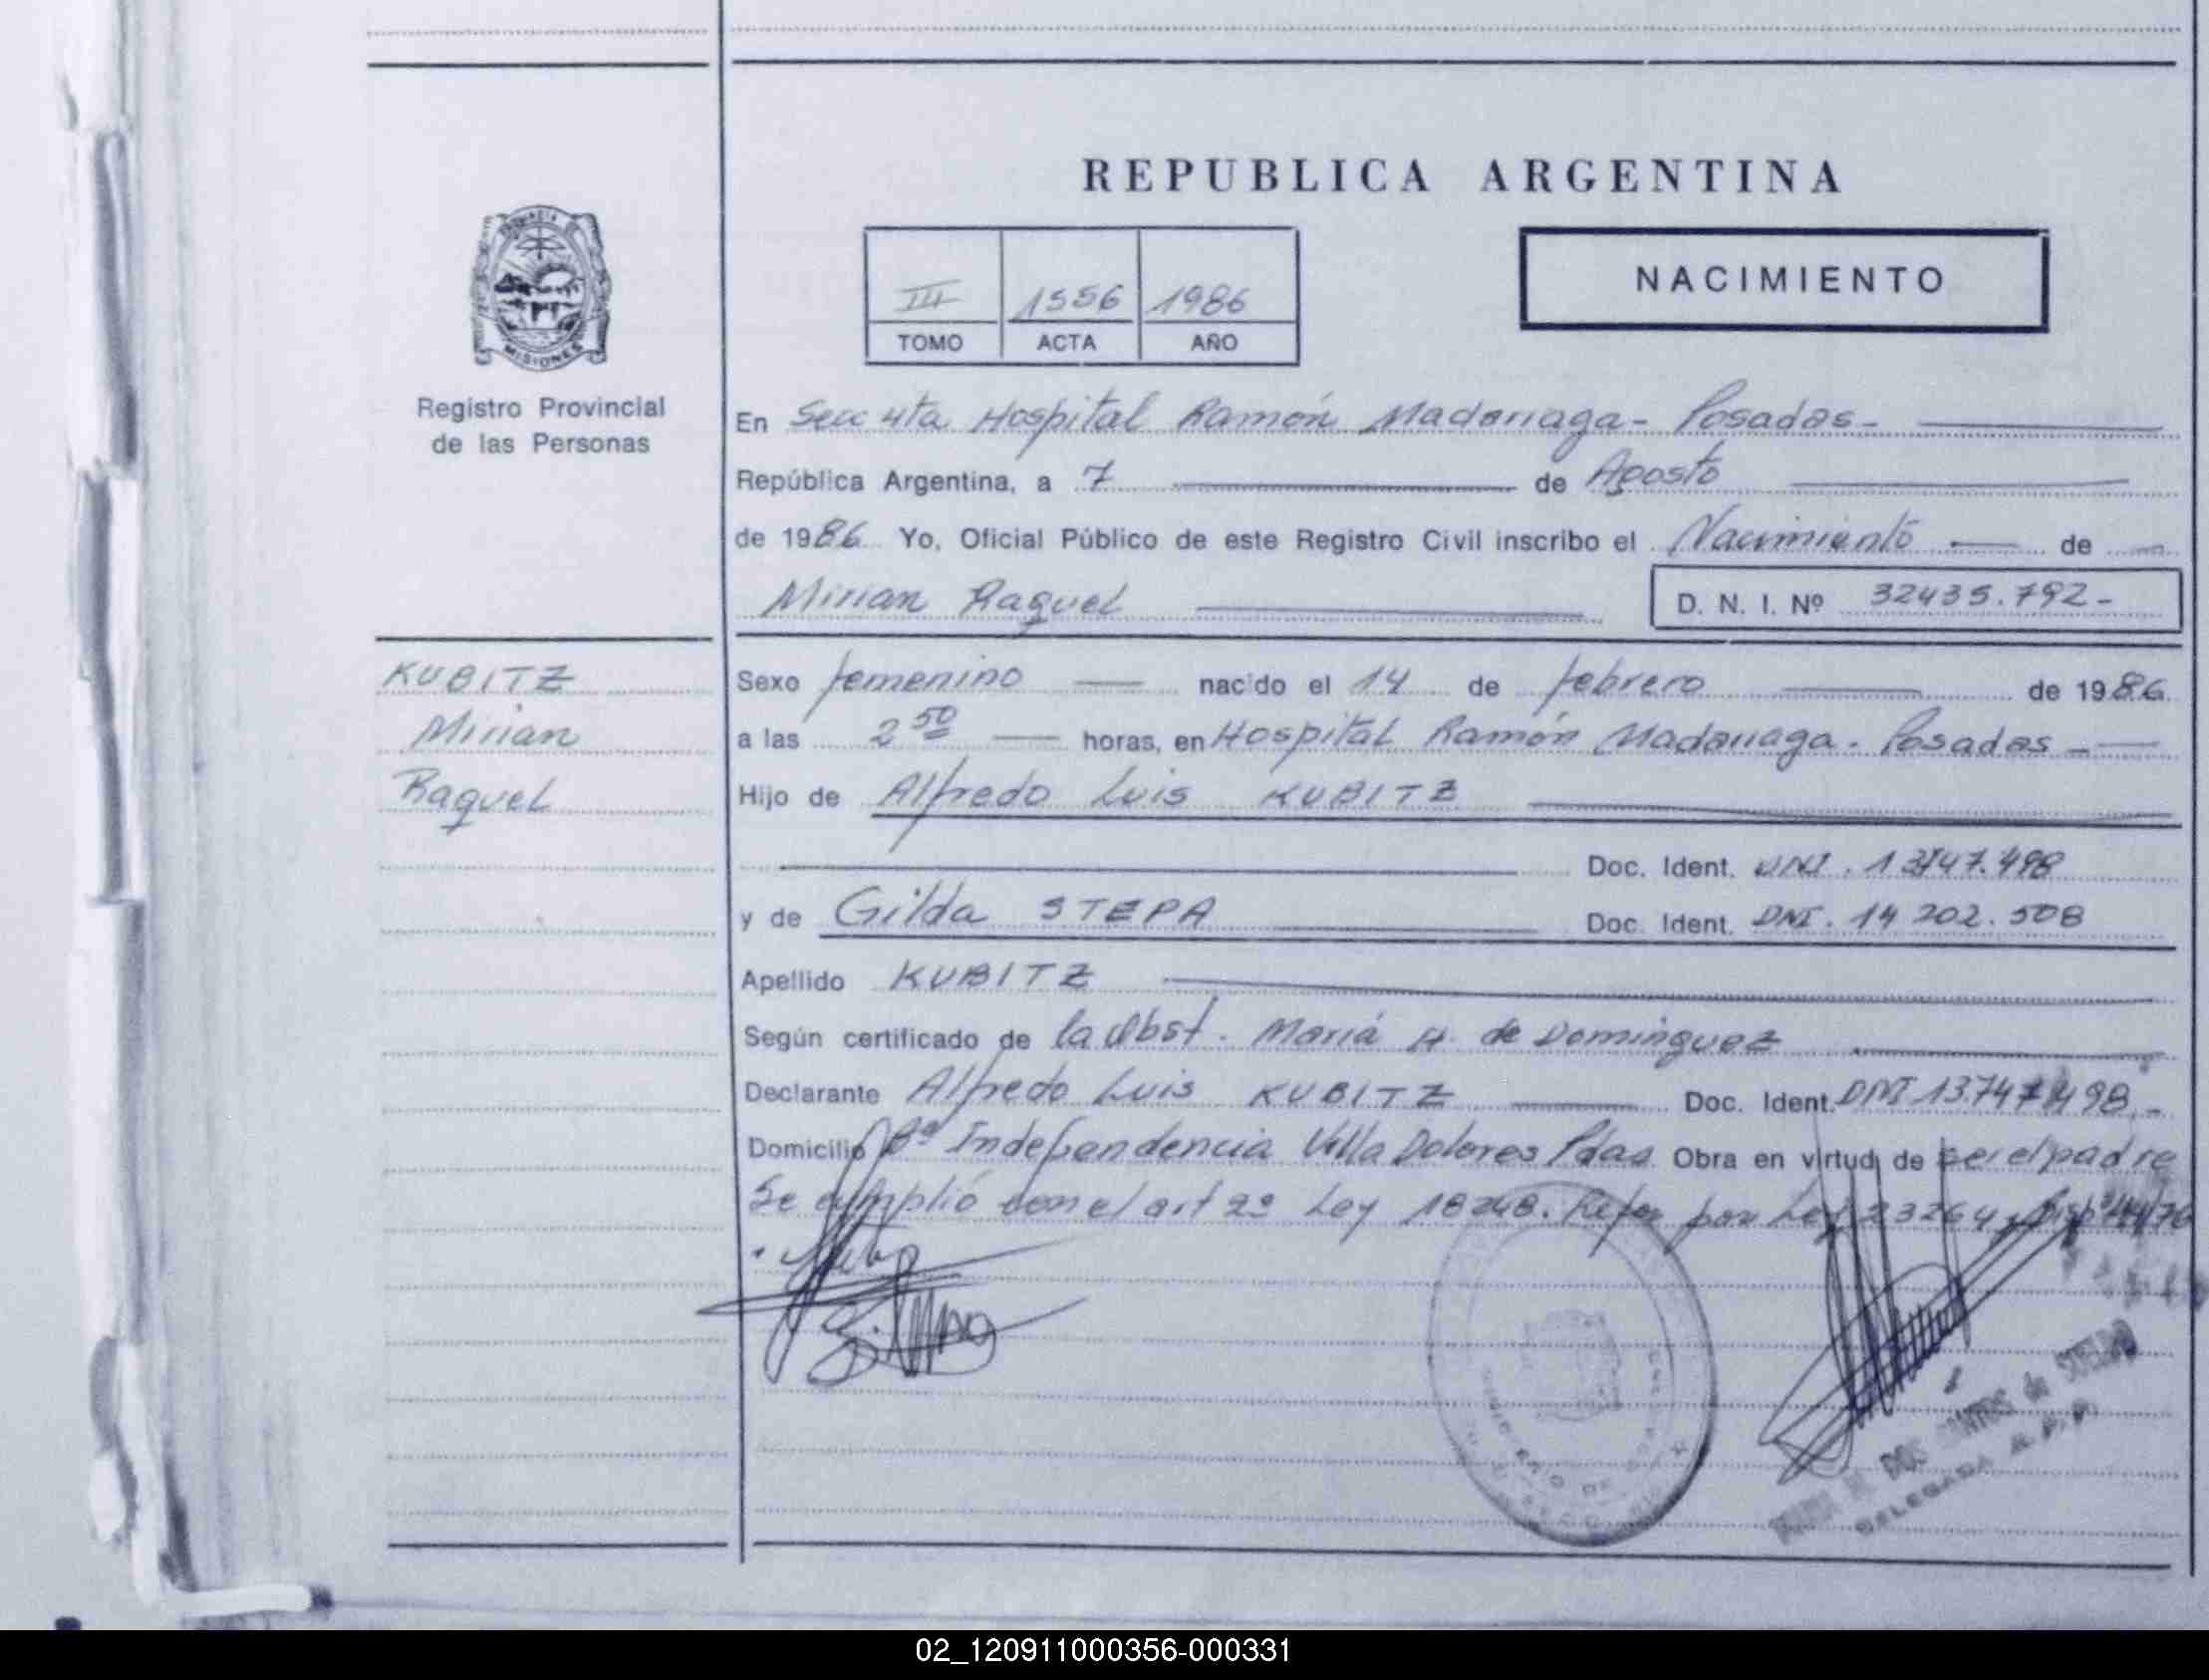 REPUBLICA ARGENTINA
NACIMIENTO
III 1556 1986
TOMO ACTA AÑO
MISIONES
Registro Provincial
de las Personas
En Secc 4ta Hospital Ramón Madariaga - Posadas -
República Argentina, a 7 de Agosto
de 1986 Yo, Oficial Público de este Registro Civil inscribo el Nacimiento de
Mirian Raquel D. N. I. Nº 32435.792-
KUBITZ
Mirian
Raquel
Sexo femenino nacido el 14 de febrero de 1986
a las 2 50 horas, en Hospital Ramón Madariaga - Posadas -
Hijo de Alfredo Luis KUBITZ
Doc. Ident. DNI. 13747.498
y de Gilda STEPA Doc. Ident. DNI. 14 202.508
Apellido KUBITZ
Según certificado de la Obst. María H. de Dominguez
Declarante Alfredo Luis KUBITZ Doc. Ident. DNI 13747498.-
Domicilio Bº Independencia Villa Dolores Pdas Obra en virtud de ser el padre
Se cumplió con el art 2º Ley 18248. por Ley 23264 y Disp
DOS SANTOS de
DELEGADA R. P. P.
02_120911000356-000331